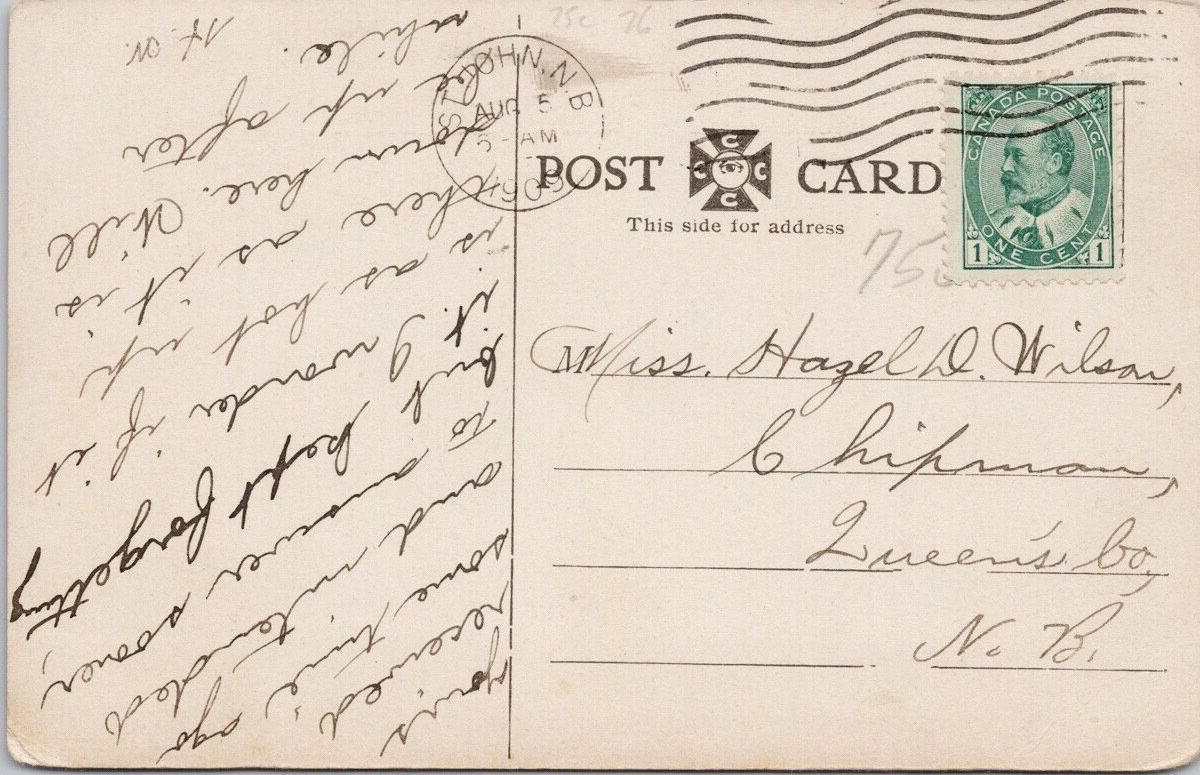 POST CARD
This side for address
C C C C
ST. JOHN, N.B.
AUG 5
AM
1909
CANADA POSTAGE
ONE CENT
1 1
75c 76
75c
Miss. Hazel D. Wilson,
Chipman,
Queen's Co,
N. B.
yours
received,
some time ago
and intended
to answer sooner,
but kept forgetting
it. I wonder if it
is as hot up
there as it is
down here. Will
be up after
while.